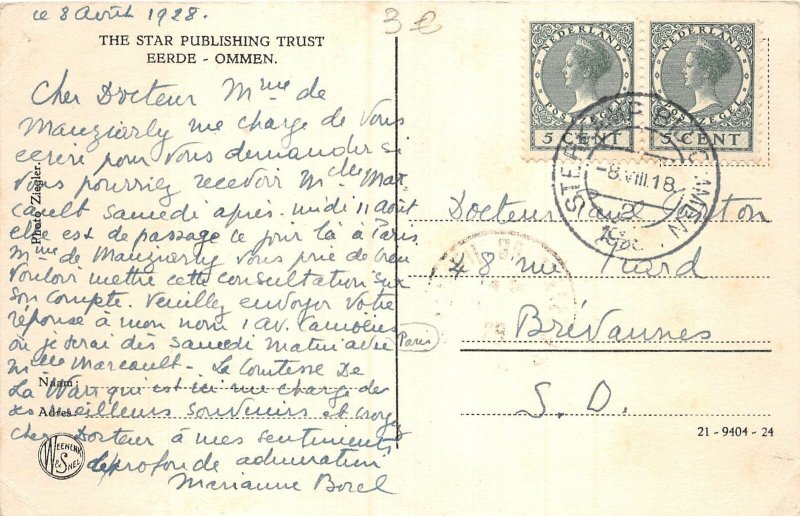 ce 8 Août 1928.
3 €
THE STAR PUBLISHING TRUST
EERDE - OMMEN.
Cher Docteur Mme de
Manziarly me charge de vous
écrire pour vous demander si
vous pourriez recevoir Mlle Mar
cault samedi après-midi 11 août
elle est de passage ce jour là à Paris
Mme de Manziarly vous prie de bien
vouloir mettre cette consultation sur
son compte. Veuillez envoyer votre
réponse à mon nom 1 av. Camoëns
(Paris)
où je serai dès samedi matin avec
Mlle Marcault - La Comtesse De
La Warr qui est ici me charge de
ses meilleurs souvenirs et croyez
cher Docteur à mes sentiments
de profonde admiration
Marianne Borel
Naam:
Adres:
Photo Ziegler.
WEENENK & SNEL
NEDERLAND
POSTZEGEL
5 CENT
NEDERLAND
POSTZEGEL
5 CENT
-8.VIII.18
1928
Docteur Paul Carton
8 rue
Brévannes
S. O.
21 - 9404 - 24